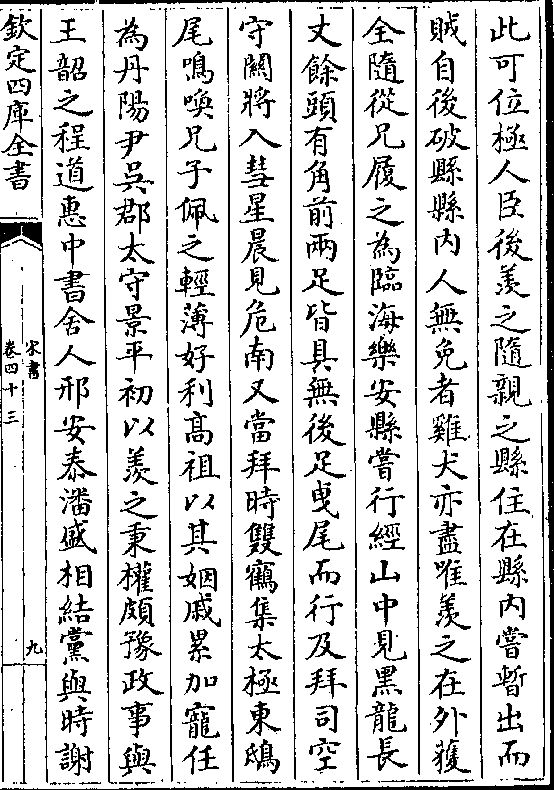 此可位極人臣後羨之隨親之縣住在縣内嘗暫出而
賊自後破縣縣内人無免者雞犬亦盡唯羨之在外獲
全隨從兄履之為臨海樂安縣嘗行經山中見黒龍長
丈餘頭有角前兩足皆具無後足曵尾而行及拜司空
守關將入彗星晨見危南又當拜時雙鶴集太極東鴟
尾鳴喚兄子佩之輕薄好利高祖以其姻戚累加寵任
為丹陽尹吳郡太守景平初以羨之秉權頗豫政事與
王韶之程道惠中書舍人邢安泰潘盛相結黨與時謝
欽定四庫全書
宋書
卷四十三
九